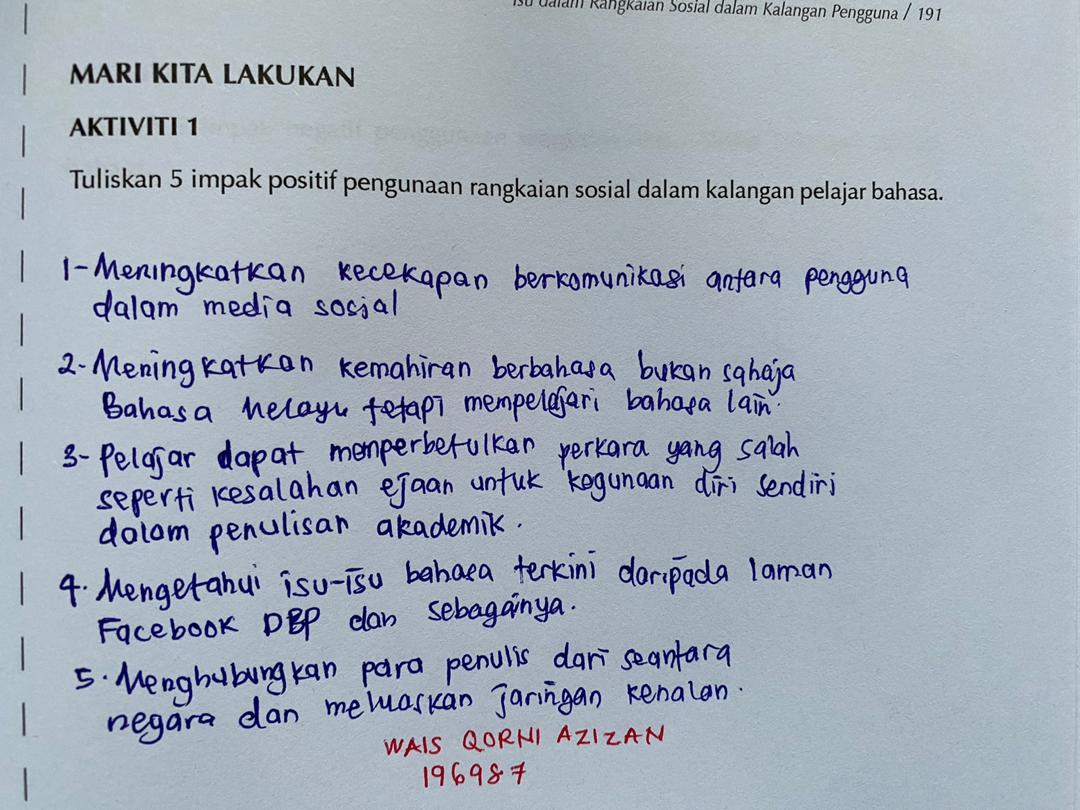 Isu dalam Rangkaian Sosial dalam Kalangan Pengguna / 191
MARI KITA LAKUKAN
AKTIVITI 1
Tuliskan 5 impak positif pengunaan rangkaian sosial dalam kalangan pelajar bahasa.
1-Meningkatkan kecekapan berkomunikasi antara pengguna
dalam media sosial
2-Meningkatkan kemahiran berbahasa bukan sahaja
Bahasa Melayu tetapi mempelajari bahasa lain.
3-Pelajar dapat memperbetulkan perkara yang salah
seperti kesalahan ejaan untuk kegunaan diri sendiri
dalam penulisan akademik.
4. Mengetahui isu-isu bahasa terkini daripada laman
Facebook DBP dan sebagainya.
5. Menghubungkan para penulis dari seantara
negara dan meluaskan jaringan kenalan.
WAIS QORNI AZIZAN
196987